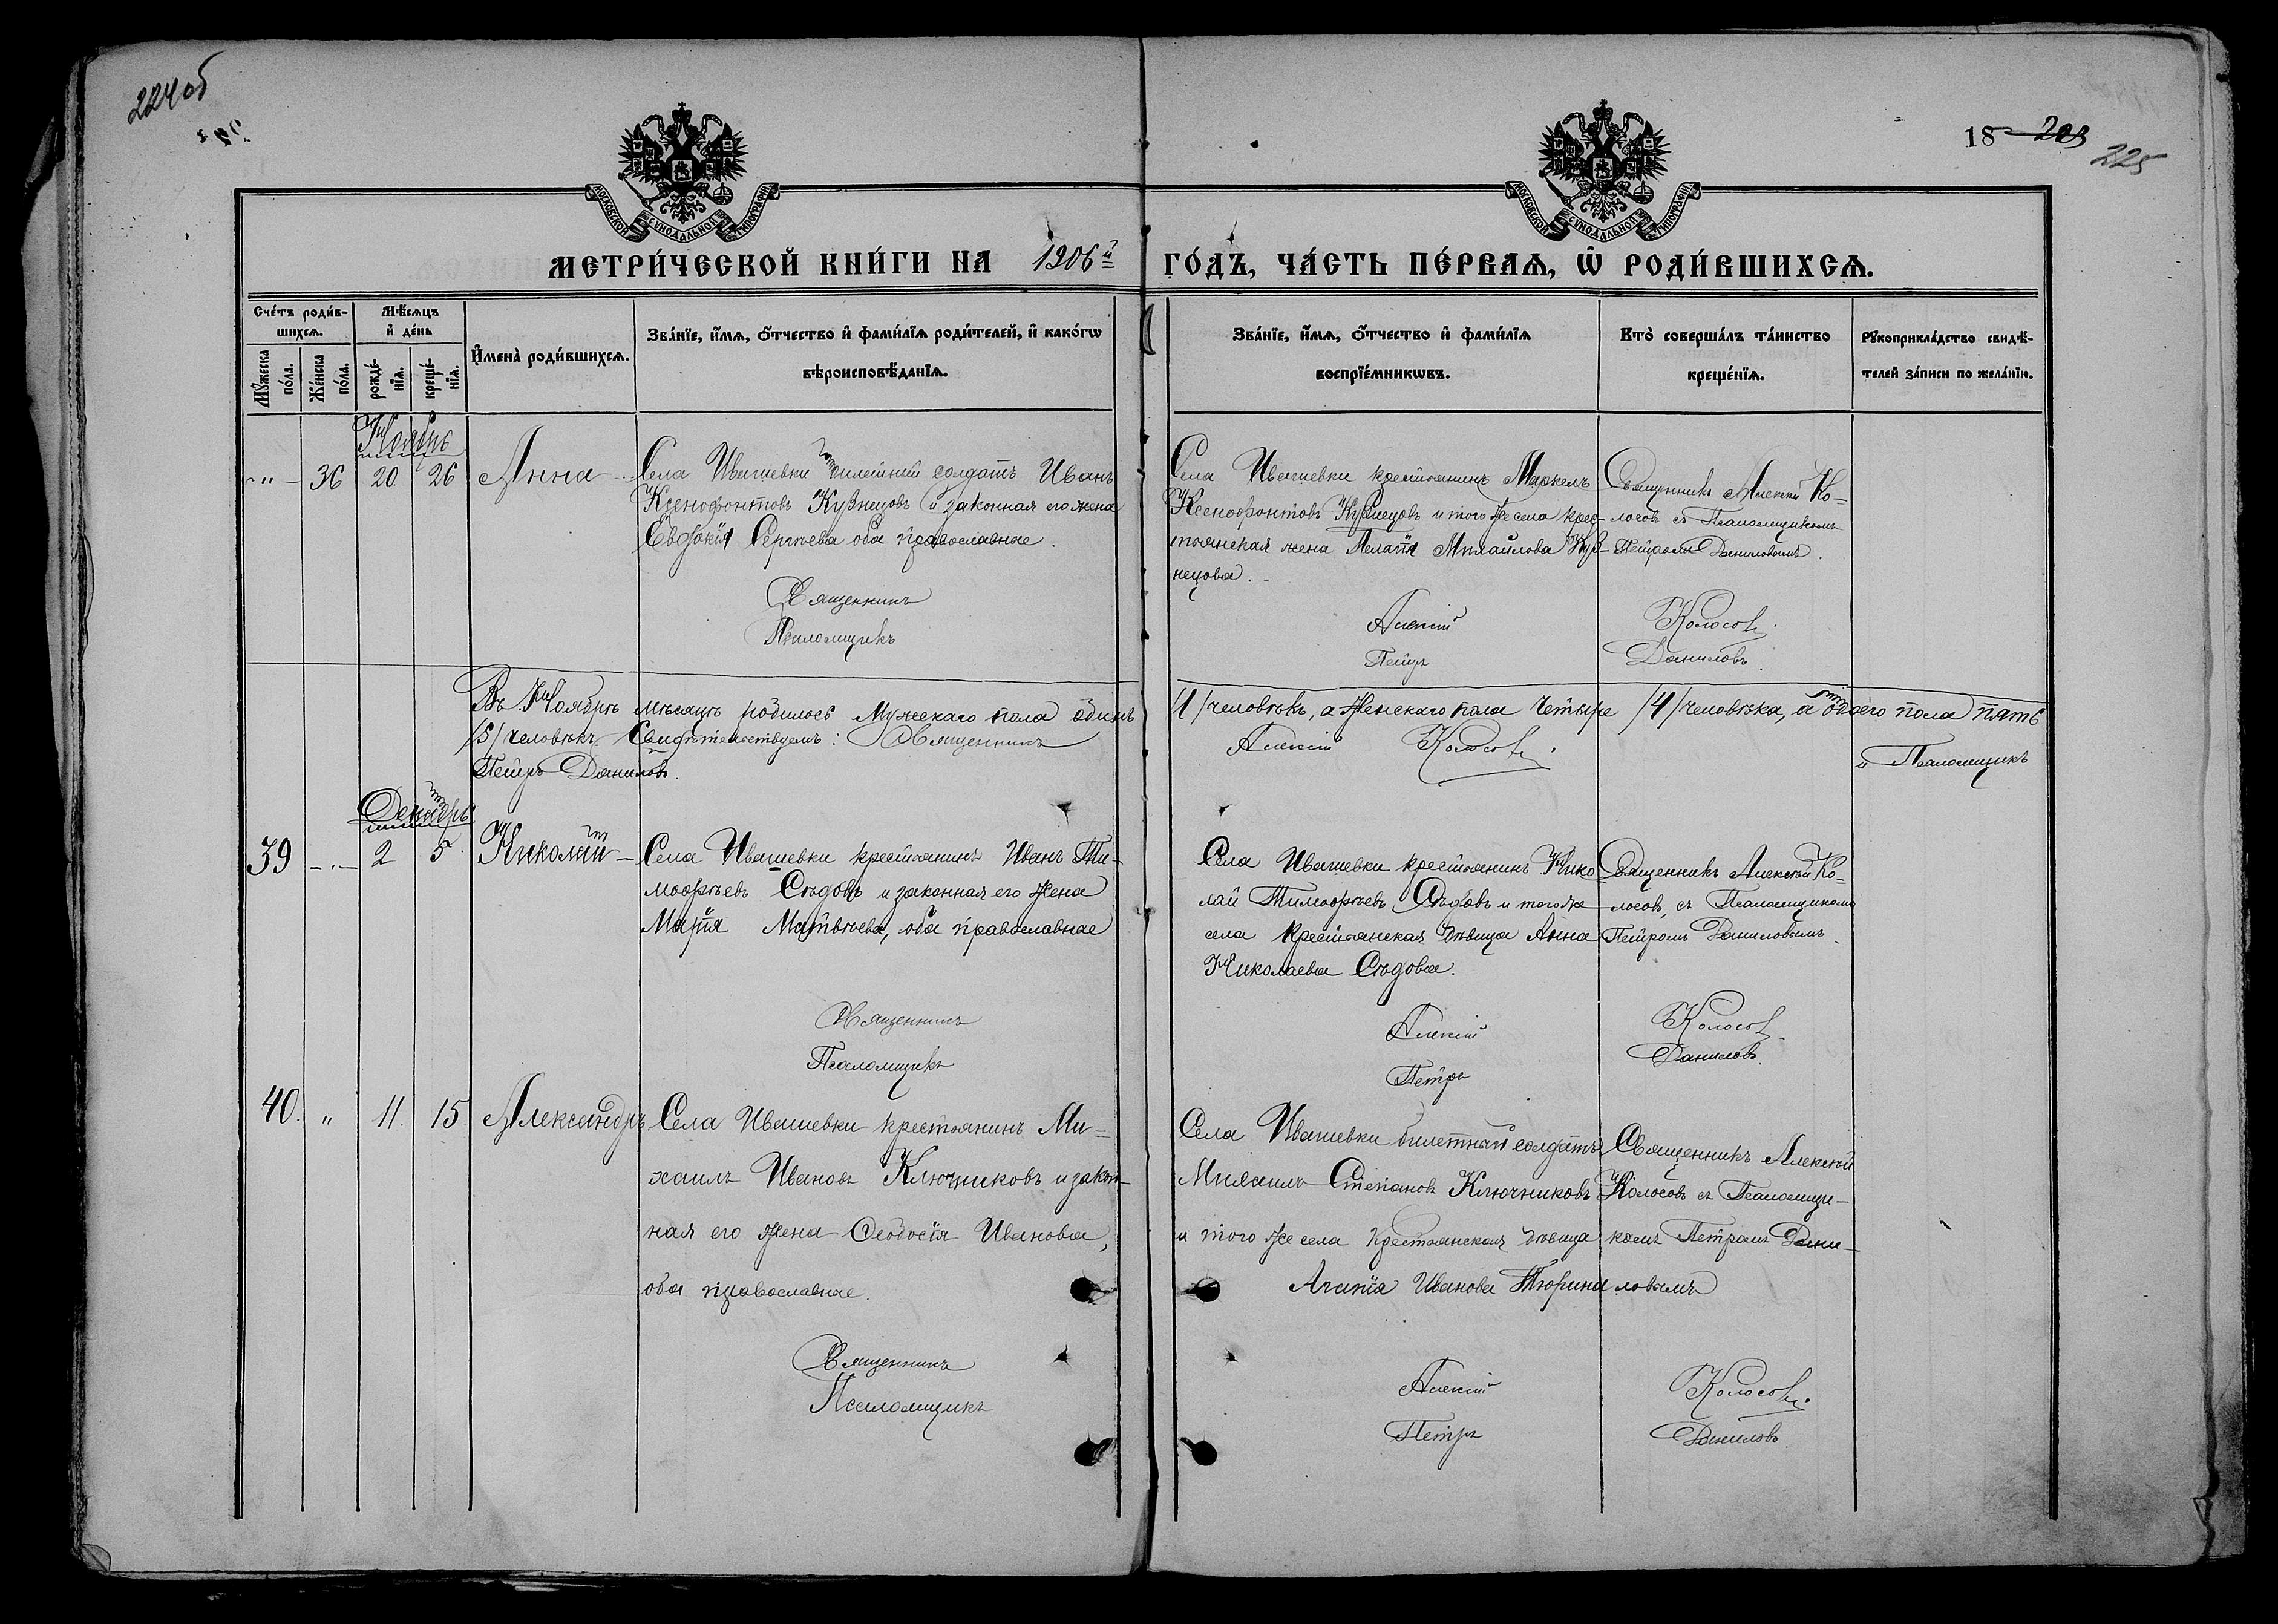 224 об
18 203
225
МОСКОВСКОЙ СѴНОДАЛЬНОЙ ТИПОГРАФІИ
МОСКОВСКОЙ СѴНОДАЛЬНОЙ ТИПОГРАФІИ
МЕТРИ́ЧЕСКОЙ КНИ́ГИ НА 1906й ГО́ДЪ, ЧА́СТЬ ПЕ́РВАѦ, Ѡ҆ РОДИ́ВШИХСѦ.
Сче́тъ роди́в-
шихсѧ.
Мꙋ́жеска по́ла.
Же́нска по́ла.
Мѣ́сѧцъ
и҆ де́нь
рожде́-
нїѧ.
креще́-
нїѧ.
И҆мена̀ роди́вшихсѧ.
Зва́нїе, и҆́мѧ, ѻ҆́тчество и҆ фами́лїѧ роди́телей, и҆ како́гѡ
вѣроисповѣ́данїѧ.
Зва́нїе, и҆́мѧ, ѻ҆́тчество и҆ фами́лїѧ
воспрїе́мникѡвъ.
Кто̀ соверша́лъ та́инство
креще́нїѧ.
Рꙋкоприкла́дство свидѣ́-
телей за́писи по жела́нїю.
Ноябрь
„ 36 20 26 Анна
Села Ивашевки билетный солдатъ Иванъ
Ксенофонтовъ Кузнецовъ и законная его жена
Евдокія Сергѣева оба православные.
Села Ивашевки крестьянинъ Маркелъ
Ксенофонтовъ Кузнецовъ и того же села крес-
тьянская жена Пелагія Михайлова Куз-
нецова.
Священникъ Алексій Ко-
лосовъ съ Псаломщикомъ
Петромъ Даниловымъ.
Священникъ Алексій Колосовъ.
Псаломщикъ Петръ Даниловъ.
Въ Ноябрѣ мѣсяцѣ родилось Мужескаго пола одинъ /1/ человѣкъ, а Женскаго пола четыре /4/ человѣка, а обоего пола пять
/5/ человѣкъ. Свидѣтельствуемъ: Священникъ Алексій Колосовъ. и Псаломщикъ
Петръ Даниловъ.
Декабрь
39 „ 2 5 Николай
Села Ивашевки крестьянинъ Иванъ Ти-
моѳеевъ Сѣдовъ и законная его жена
Марія Матвѣева, оба православные
Села Ивашевки крестьянинъ Нико
лай Тимоѳеевъ Сѣдовъ и того же
села крестьянская дѣвица Анна
Николаева Сѣдова.
Священникъ Алексѣй Ко-
лосовъ, съ Псаломщикомъ
Петромъ Даниловымъ.
Священникъ Алексій Колосовъ.
Псаломщикъ Петръ Даниловъ.
40. „ 11. 15 Александръ
Села Ивашевки крестьянинъ Ми-
хаилъ Ивановъ Ключниковъ и закон-
ная его жена Ѳеодосія Иванова,
оба православные.
Села Ивашевки билетный солдатъ
Михаилъ Степановъ Ключниковъ
и того же села крестьянская дѣвица
Агапія Иванова Тюрина
Священникъ Алексѣй
Колосовъ съ Псаломщи-
комъ Петромъ Дани-
ловымъ
Священникъ Алексій Колосовъ.
Псаломщикъ Петръ Даниловъ.